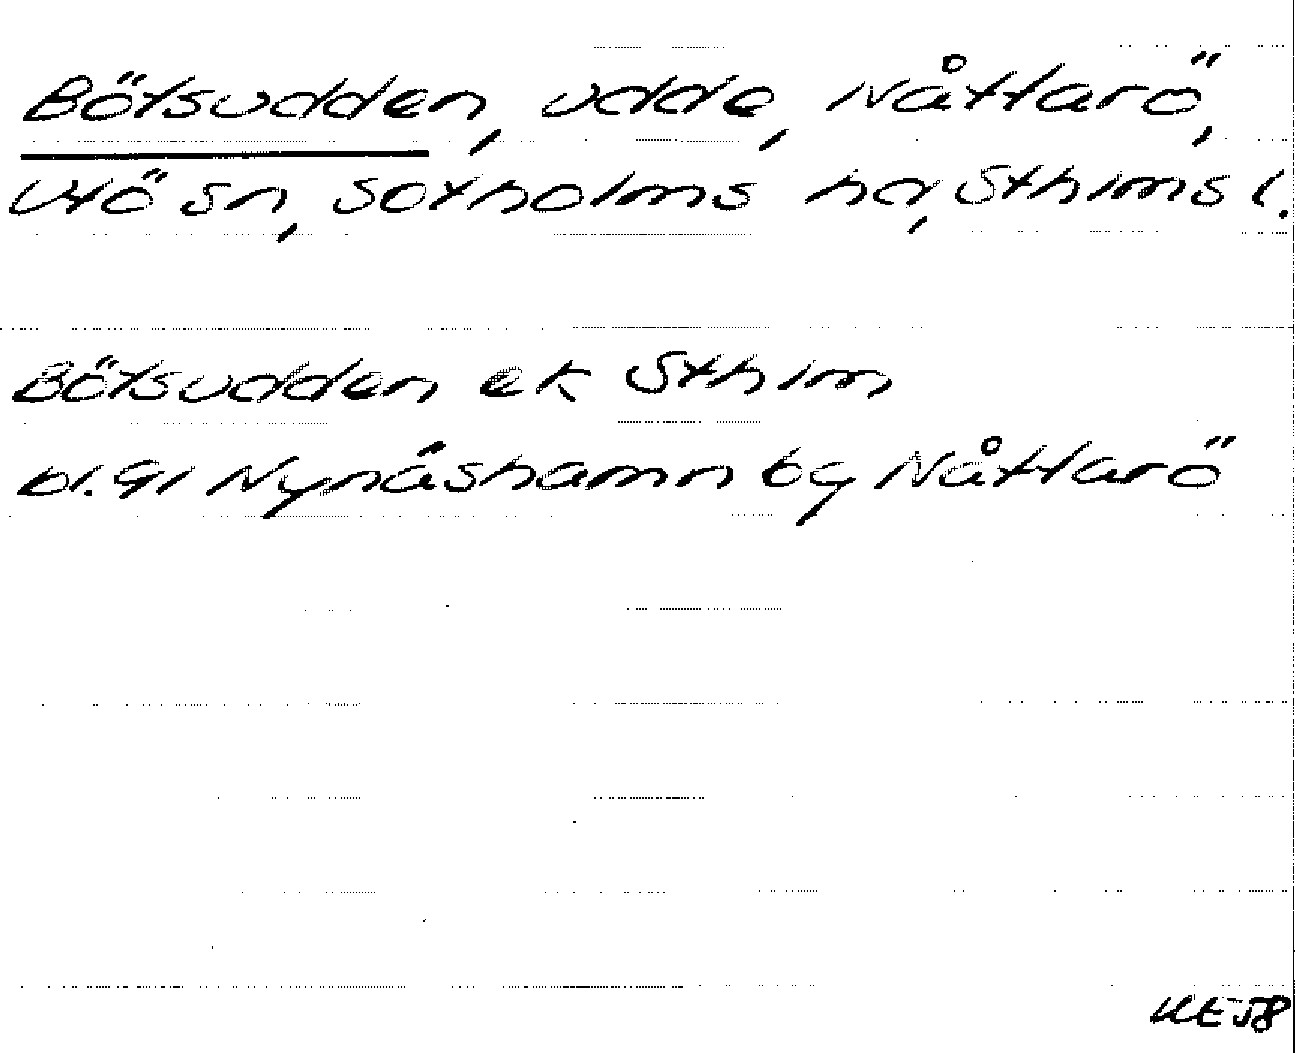 Bötsudden, udde, Nåttarö,
Utö sn, Sotholms hd, Sthlms l.
Bötsudden ek Sthlm
bl. 91 Nynäshamn by Nåttarö
KE 58